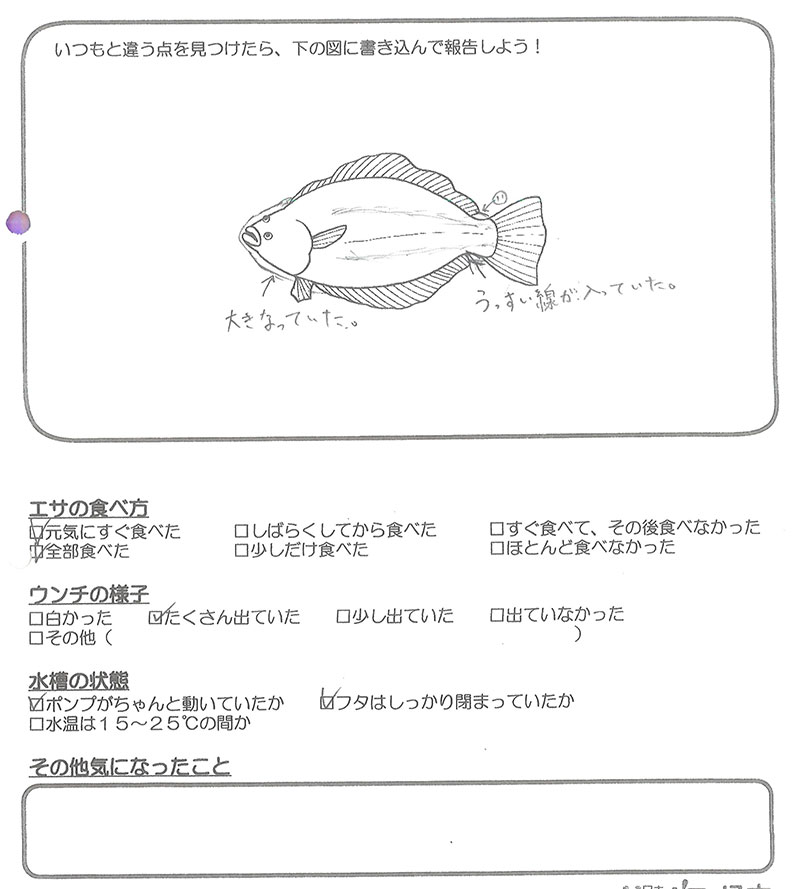 いつもと違う点を見つけたら、下の図に書き込んで報告しよう！
大きなっていた。
うっすい線が入っていた。
エサの食べ方
☑元気にすぐ食べた □しばらくしてから食べた □すぐ食べて、その後食べなかった
☑全部食べた □少しだけ食べた □ほとんど食べなかった
ウンチの様子
□白かった ☑たくさん出ていた □少し出ていた □出ていなかった
□その他（ ）
水槽の状態
☑ポンプがちゃんと動いていたか ☑フタはしっかり閉まっていたか
□水温は１５～２５℃の間か
その他気になったこと